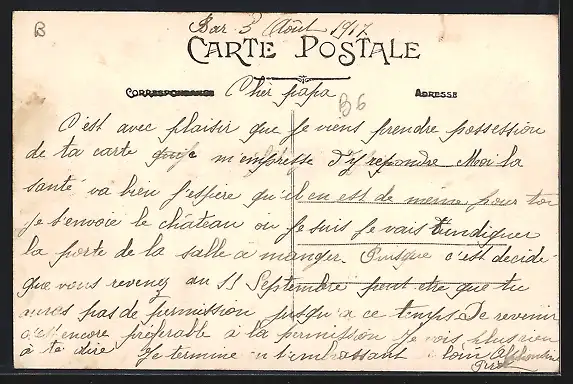 B
Bar 3 Août 1917
CARTE POSTALE
CORRESPONDANCE
ADRESSE
Cher papa
B6
C'est avec plaisir que je viens prendre possession
de ta carte que je m'empresse d'y repondre Moi la
sante va bien j'espère qu'il en est de meme pour toi
Je t'envoie le château ou je suis je vais t'indiquer
la porte de la salle a manger. Puisque c'est décidé
que vous revenez au 15 Septembre peut etre que tu
auras pas de permission jusqu'a ce temps. De revenir
c'est encore préferable a la permission Je vois plus rien
à te dire Je termine en t'embrassant loin